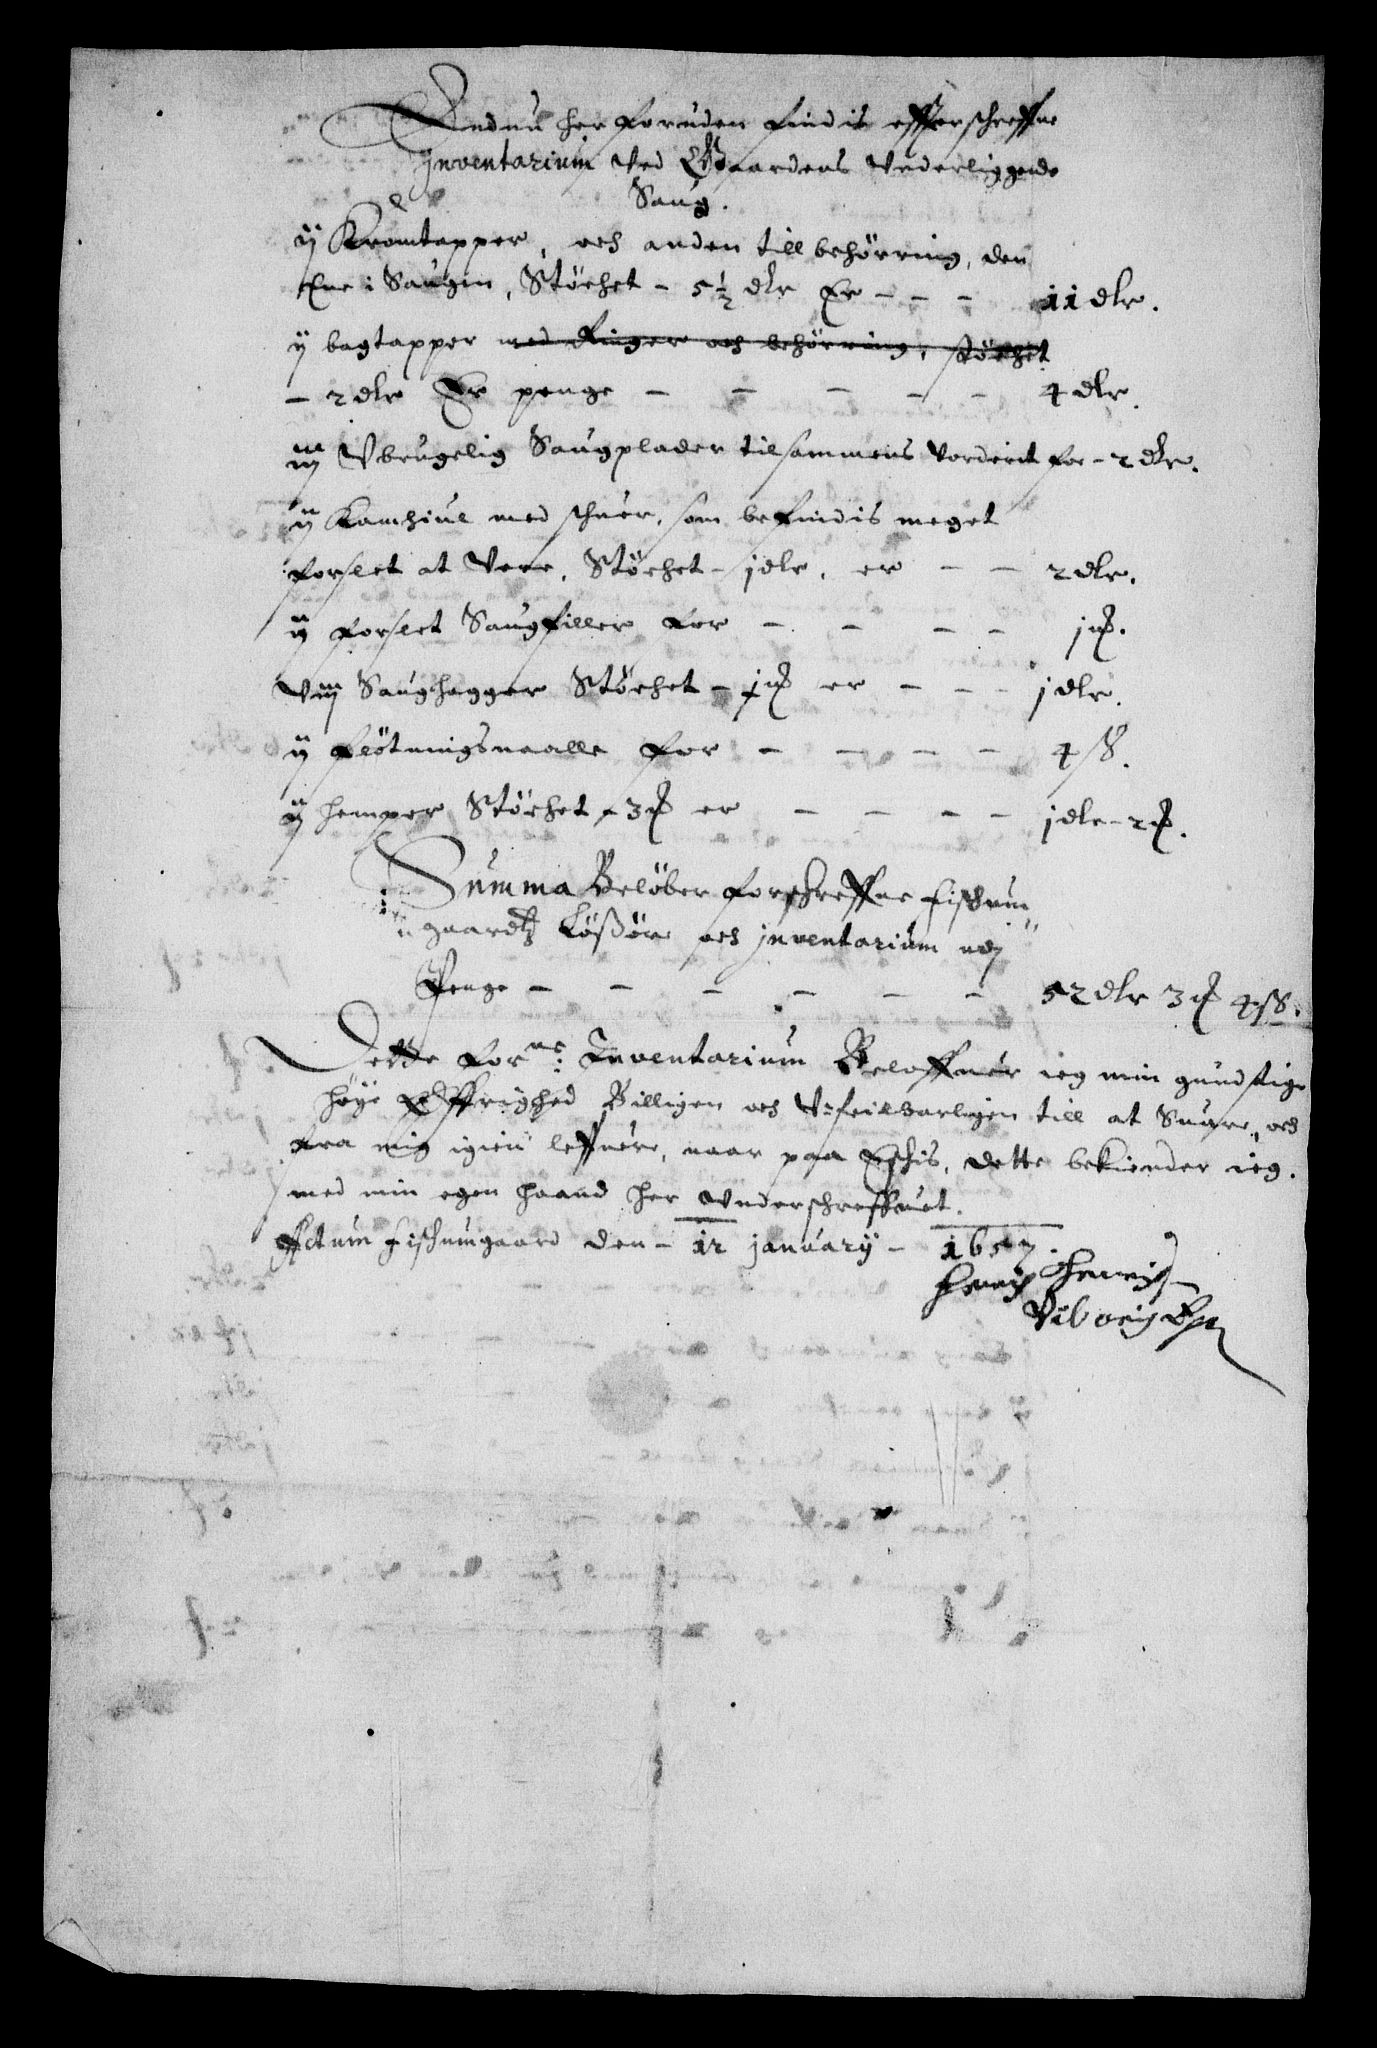 Endnu her foruden findis effterschreffne
Inventarium ved Gaardens Underliggende
Saug.
ij Kromtapper, och anden till behörring, den
Ene i Saugen, Stöchet - 5½ dlr Er - - - 11 dlr.
ij bagtapper med Ringer och behörring, stöchet
- 2 dlr Er penge - - - - - 4 dlr.
iiij Ubrugelig Saugplader tilsammens Vorderit for - 2 dlr.
ij Kamhiul med schuer, som befindis meget
forslet at Vere, Stöchet - j dlr, er - - 2 dlr.
ij forslet Saugfiller for - - - - j ort.
viij Saughagger Stöchet - ort er - - - j dlr.
ij flötningsnaalle for - - - - 4 ß.
ij hemper Stöchet - 3 ort er - - - - j dlr - 2 ort.
Summa Belöber forschreffne Fischum
gaardtz Lößöre och inventarium udj
Penge - - - - - - 52 dlr 3 ort 4 ß.
Dette forne: Inventarium Beloffuer ieg min gundstige
höye Öffrighed Billigen och Ufeilbarligen till at Suare, och
fra mig igien leffuere, naar paa Eschis, dette bekiender ieg.
med min egen haand her underschreffuet.
Actum Fischumgaard den - 12 january - 1657.